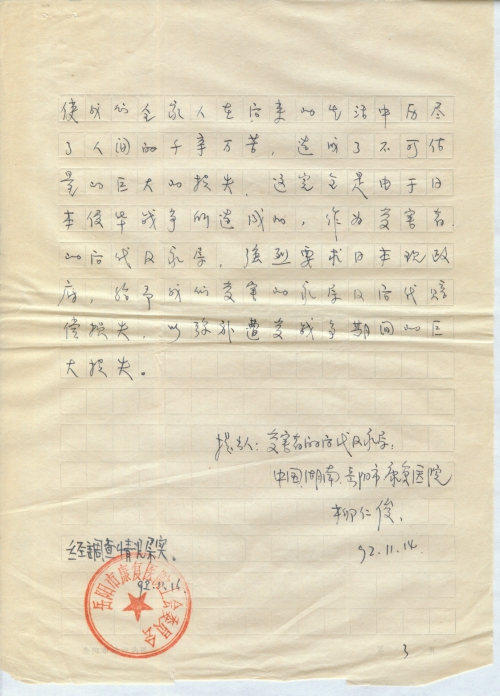 使我们全家人在后来的生活中历尽
了人间的千辛万苦，造成了不可估
量的巨大的损失，这完全是由于日
本侵华战争所造成的，作为受害者
的后代及家属，强烈要求日本现政
府，给予我们受害的家属及后代赔
偿损失，以弥补遭受战争期间的巨
大损失。
报告人：受害者的后代及家属：
中国湖南岳阳市康复医院
柳仁俊，
92.11.14.
经調查情况杲实。
92.11.15
岳阳市康复医院 委员会
3